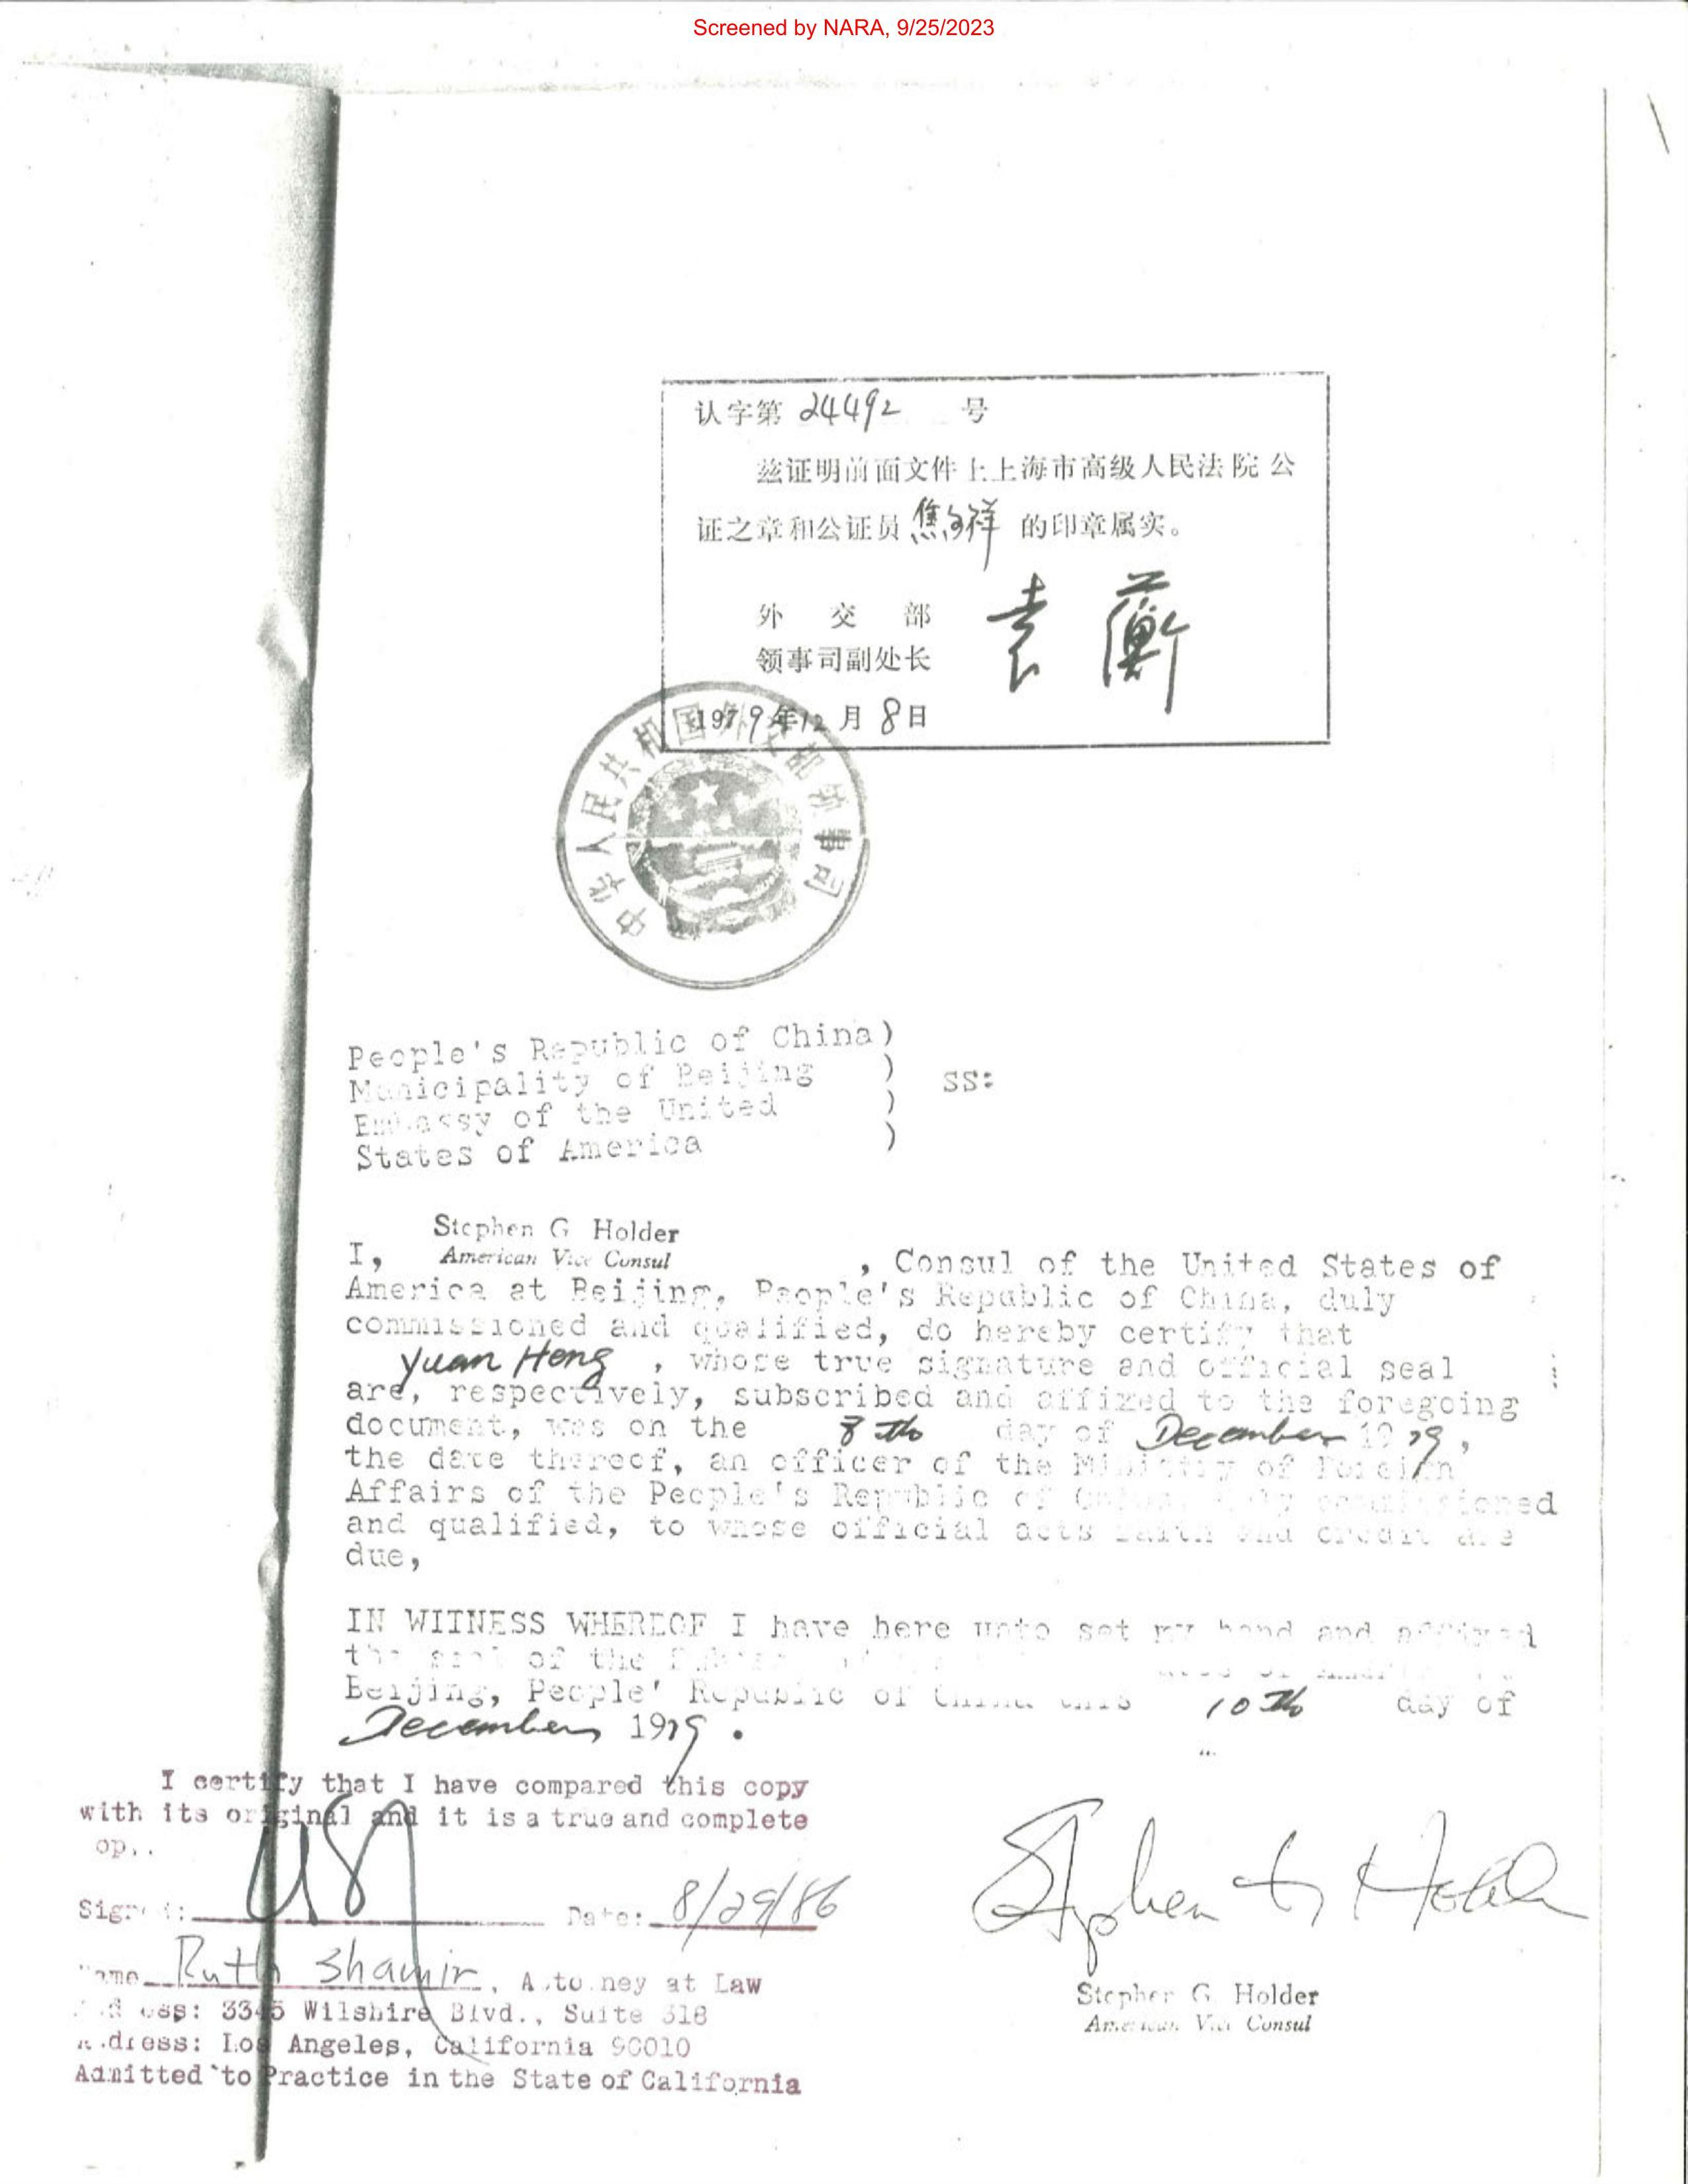 Screened by NARA, 9/25/2023
认字第 24492 号
兹证明前面文件上上海市高级人民法院公
证之章和公证员 焦 祥 的印章属实。
外交部
领事司副处长 袁蘅
1979年12月8日
中华人民共和国外交部领事司
People's Republic of China)
Municipality of Beijing )
Embassy of the United )
States of America )
SS:
Stephen G Holder
American Vice Consul
I, , Consul of the United States of
America at Beijing, People's Republic of China, duly
commissioned and qualified, do hereby certify that
Yuan Heng , whose true signature and official seal
are, respectively, subscribed and affixed to the foregoing
document, was on the 8th day of December 1979,
the date thereof, an officer of the Ministry of Foreign
Affairs of the People's Republic of China, duly commissioned
and qualified, to whose official acts faith and credit are
due,
IN WITNESS WHEREOF I have here unto set my hand and affixed
the seal of the
Beijing, People' Republic of China this 10th day of
December 1979.
I certify that I have compared this copy
with its original and it is a true and complete
Signed: Date: 8/29/86
Name Ruth Shamir, Attorney at Law
Address: 3345 Wilshire Blvd., Suite 318
Address: Los Angeles, California 90010
Admitted to Practice in the State of California
Stephen G Holder
Stephen G. Holder
American Vice Consul